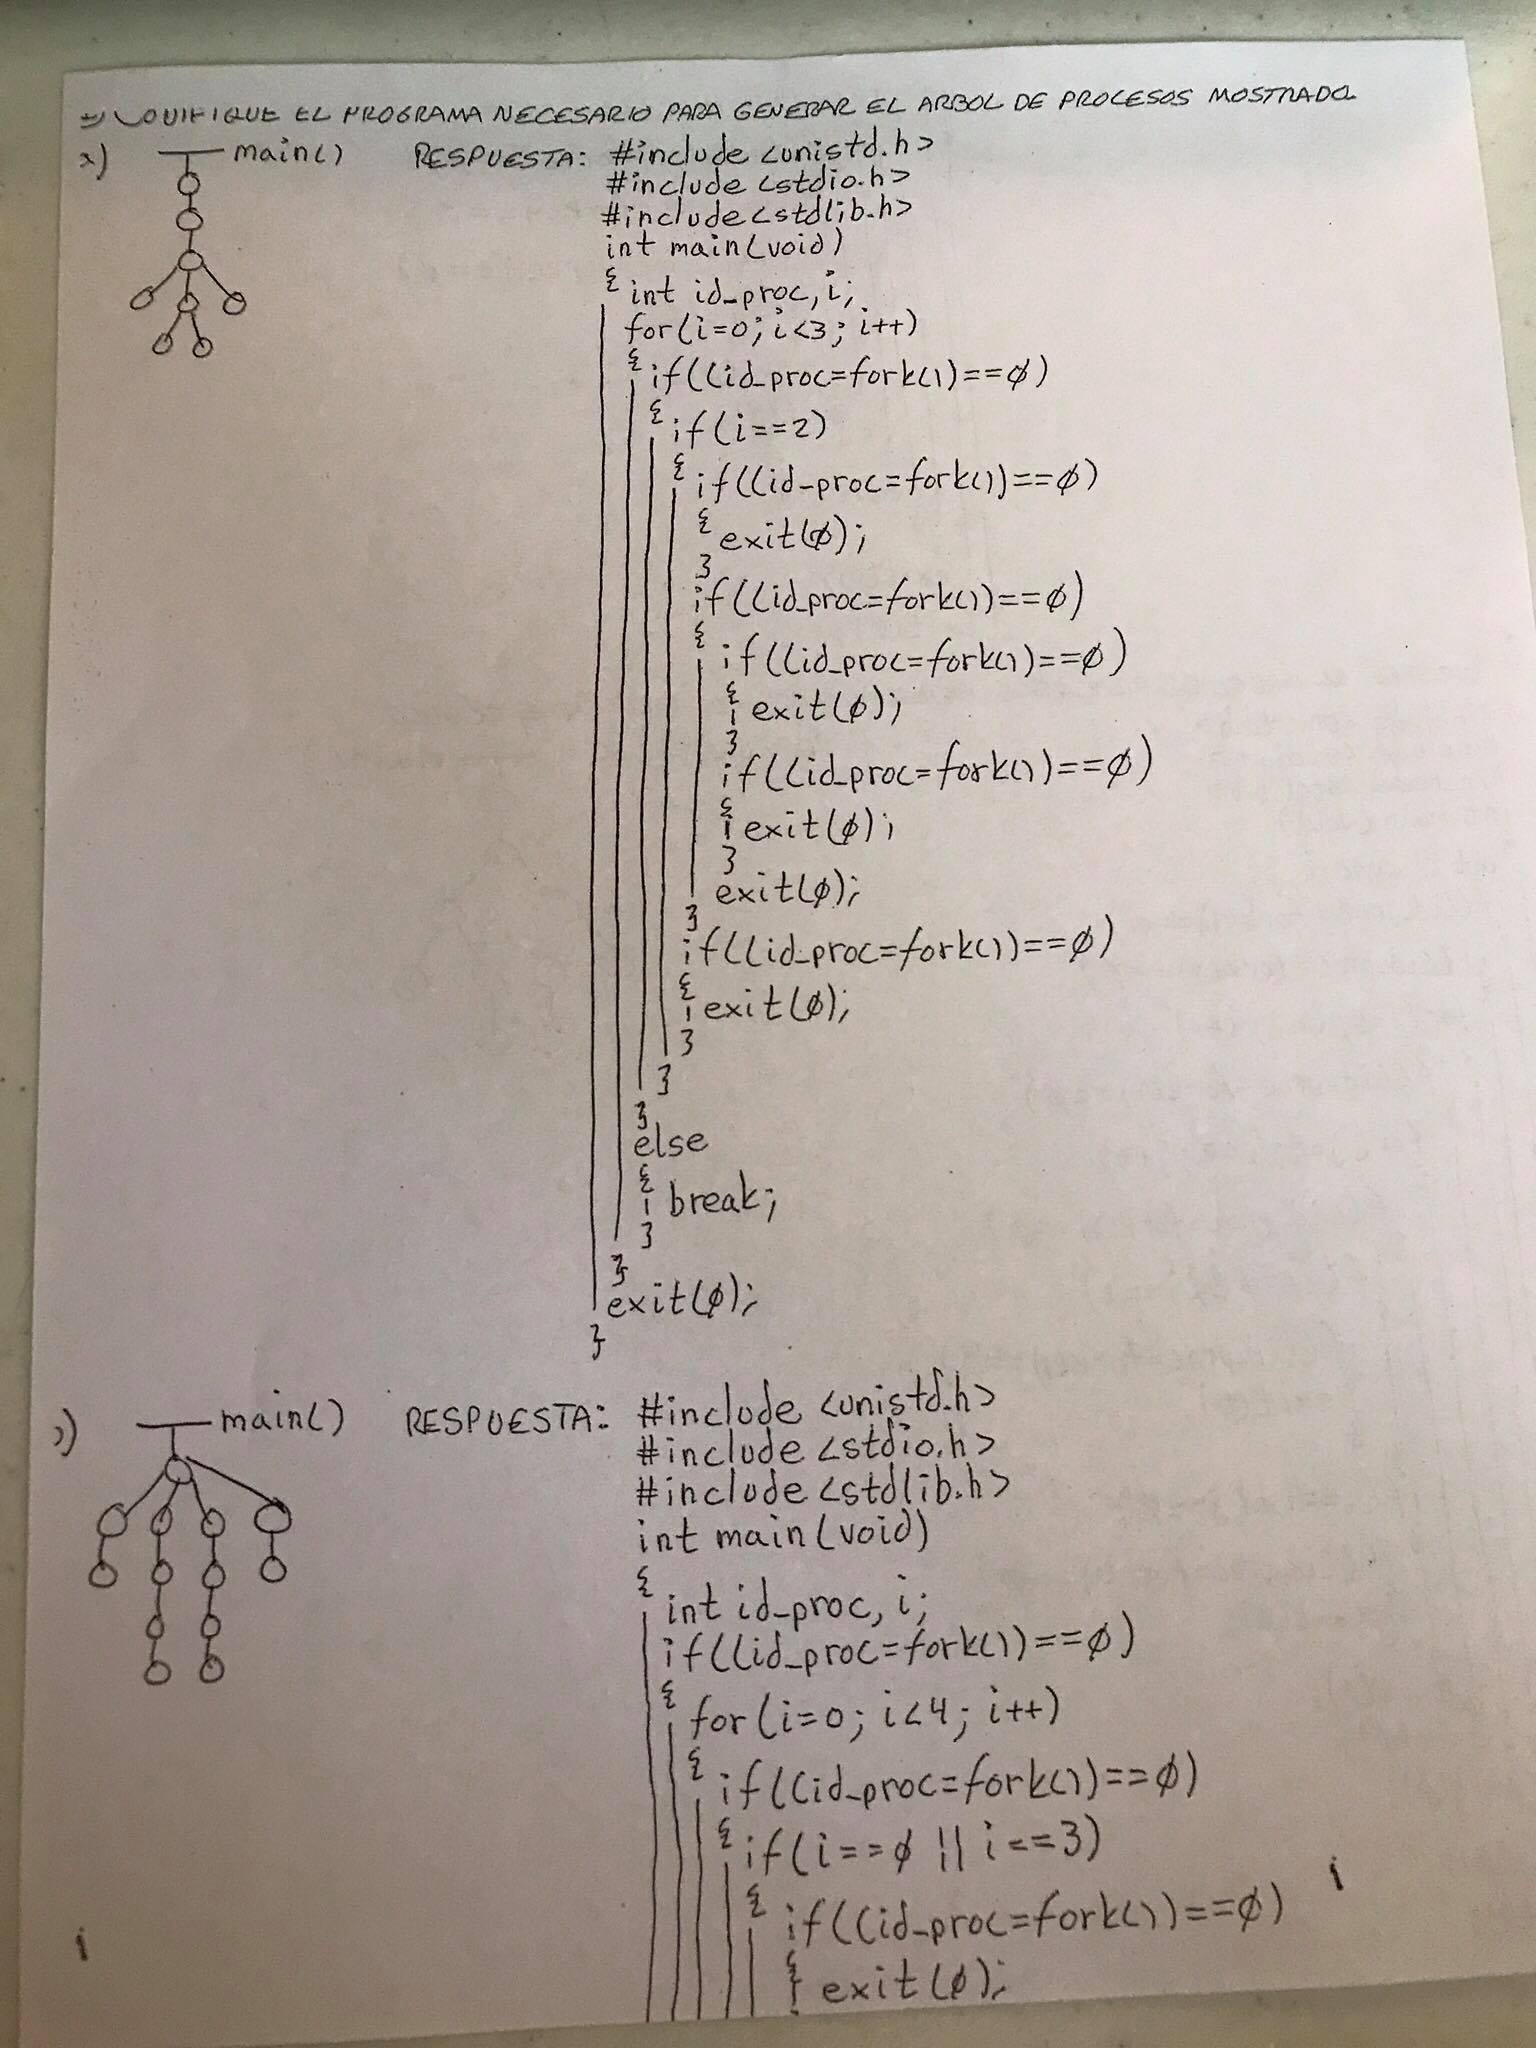 EL PROGRAMA NECESARIO PARA GENERAR EL ARBOL DE PROCESOS MOSTRADO
main()
RESPUESTA: #include <unistd.h>
#include <stdio.h>
#include <stdlib.h>
int main(void)
{
int id_proc, i;
for(i=0; i<3; i++)
{
if((id_proc=fork())==0)
{
if(i==2)
{
if((id_proc=fork())==0)
{
exit(0);
}
if((id_proc=fork())==0)
{
if((id_proc=fork())==0)
{
exit(0);
}
if((id_proc=fork())==0)
{
exit(0);
}
exit(0);
}
if((id_proc=fork())==0)
{
exit(0);
}
}
}
else
{
break;
}
}
exit(0);
}
main()
RESPUESTA: #include <unistd.h>
#include <stdio.h>
#include <stdlib.h>
int main(void)
{
int id_proc, i;
if((id_proc=fork())==0)
{
for(i=0; i<4; i++)
{
if((id_proc=fork())==0)
{
if(i==0 || i==3)
{
if((id_proc=fork())==0)
{
exit(0);